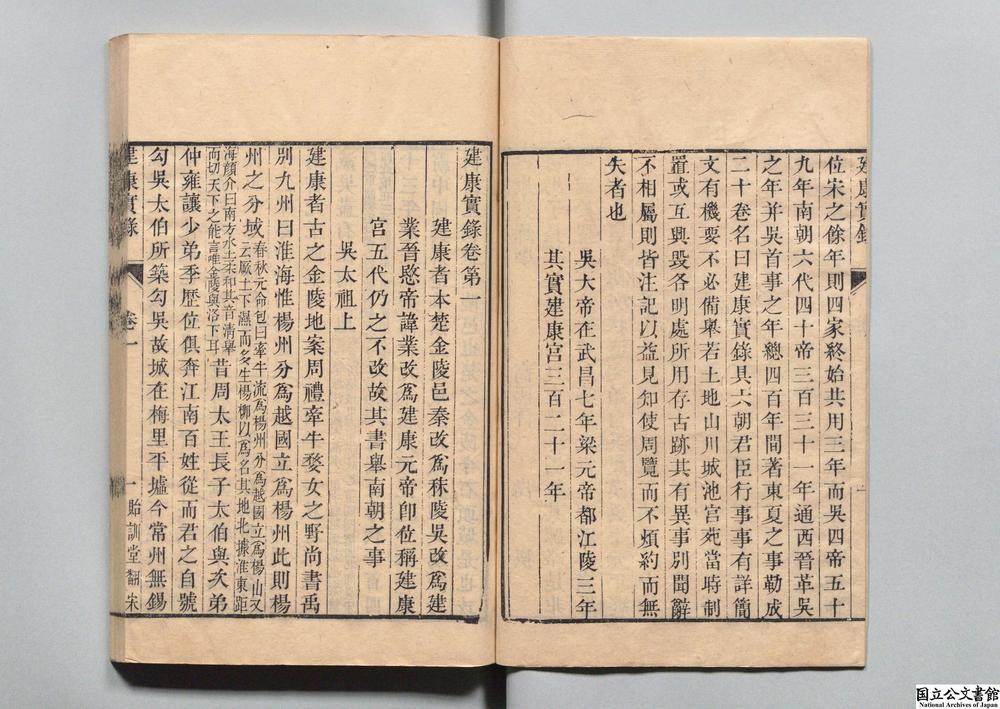 建康實錄
位宋之餘年則四家終始共用三年而吳四帝五十
九年南朝六代四十帝三百三十一年通西晉革吳
之年并吳首事之年總四百年間著東夏之事勒成
二十卷名曰建康實錄具六朝君臣行事事有詳簡
文有機要不必備舉若土地山川城池宮苑當時制
置或互興毀各明處所用存古跡其有異事別聞辭
不相屬則皆注記以益見知使周覽而不煩約而無
失者也
吳大帝在武昌七年梁元帝都江陵三年
其實建康宮三百二十一年
建康實錄卷第一
建康者本楚金陵邑秦改爲秣陵吳改爲建
業晉愍帝諱業改爲建康元帝卽位稱建康
宮五代仍之不改故其書舉南朝之事
吳太祖上
建康者古之金陵地案周禮牽牛婺女之野尚書禹
別九州曰淮海惟楊州分爲越國立爲楊州此則楊
州之分域
春秋元命包曰牽牛流爲楊州分爲越國立爲楊山又
云厥土下濕而多生楊柳以爲名其地北據淮東距
海顏介曰南方水土柔和其音清舉
而切天下之能言唯金陵與洛下耳
昔周太王長子太伯與次弟
仲雍讓少弟季歷位俱奔江南百姓從而君之自號
勾吳太伯所築勾吳故城在梅里平墟今常州無錫
建康實錄
卷一
一
貽訓堂翻宋
国立公文書館
National Archives of Japan